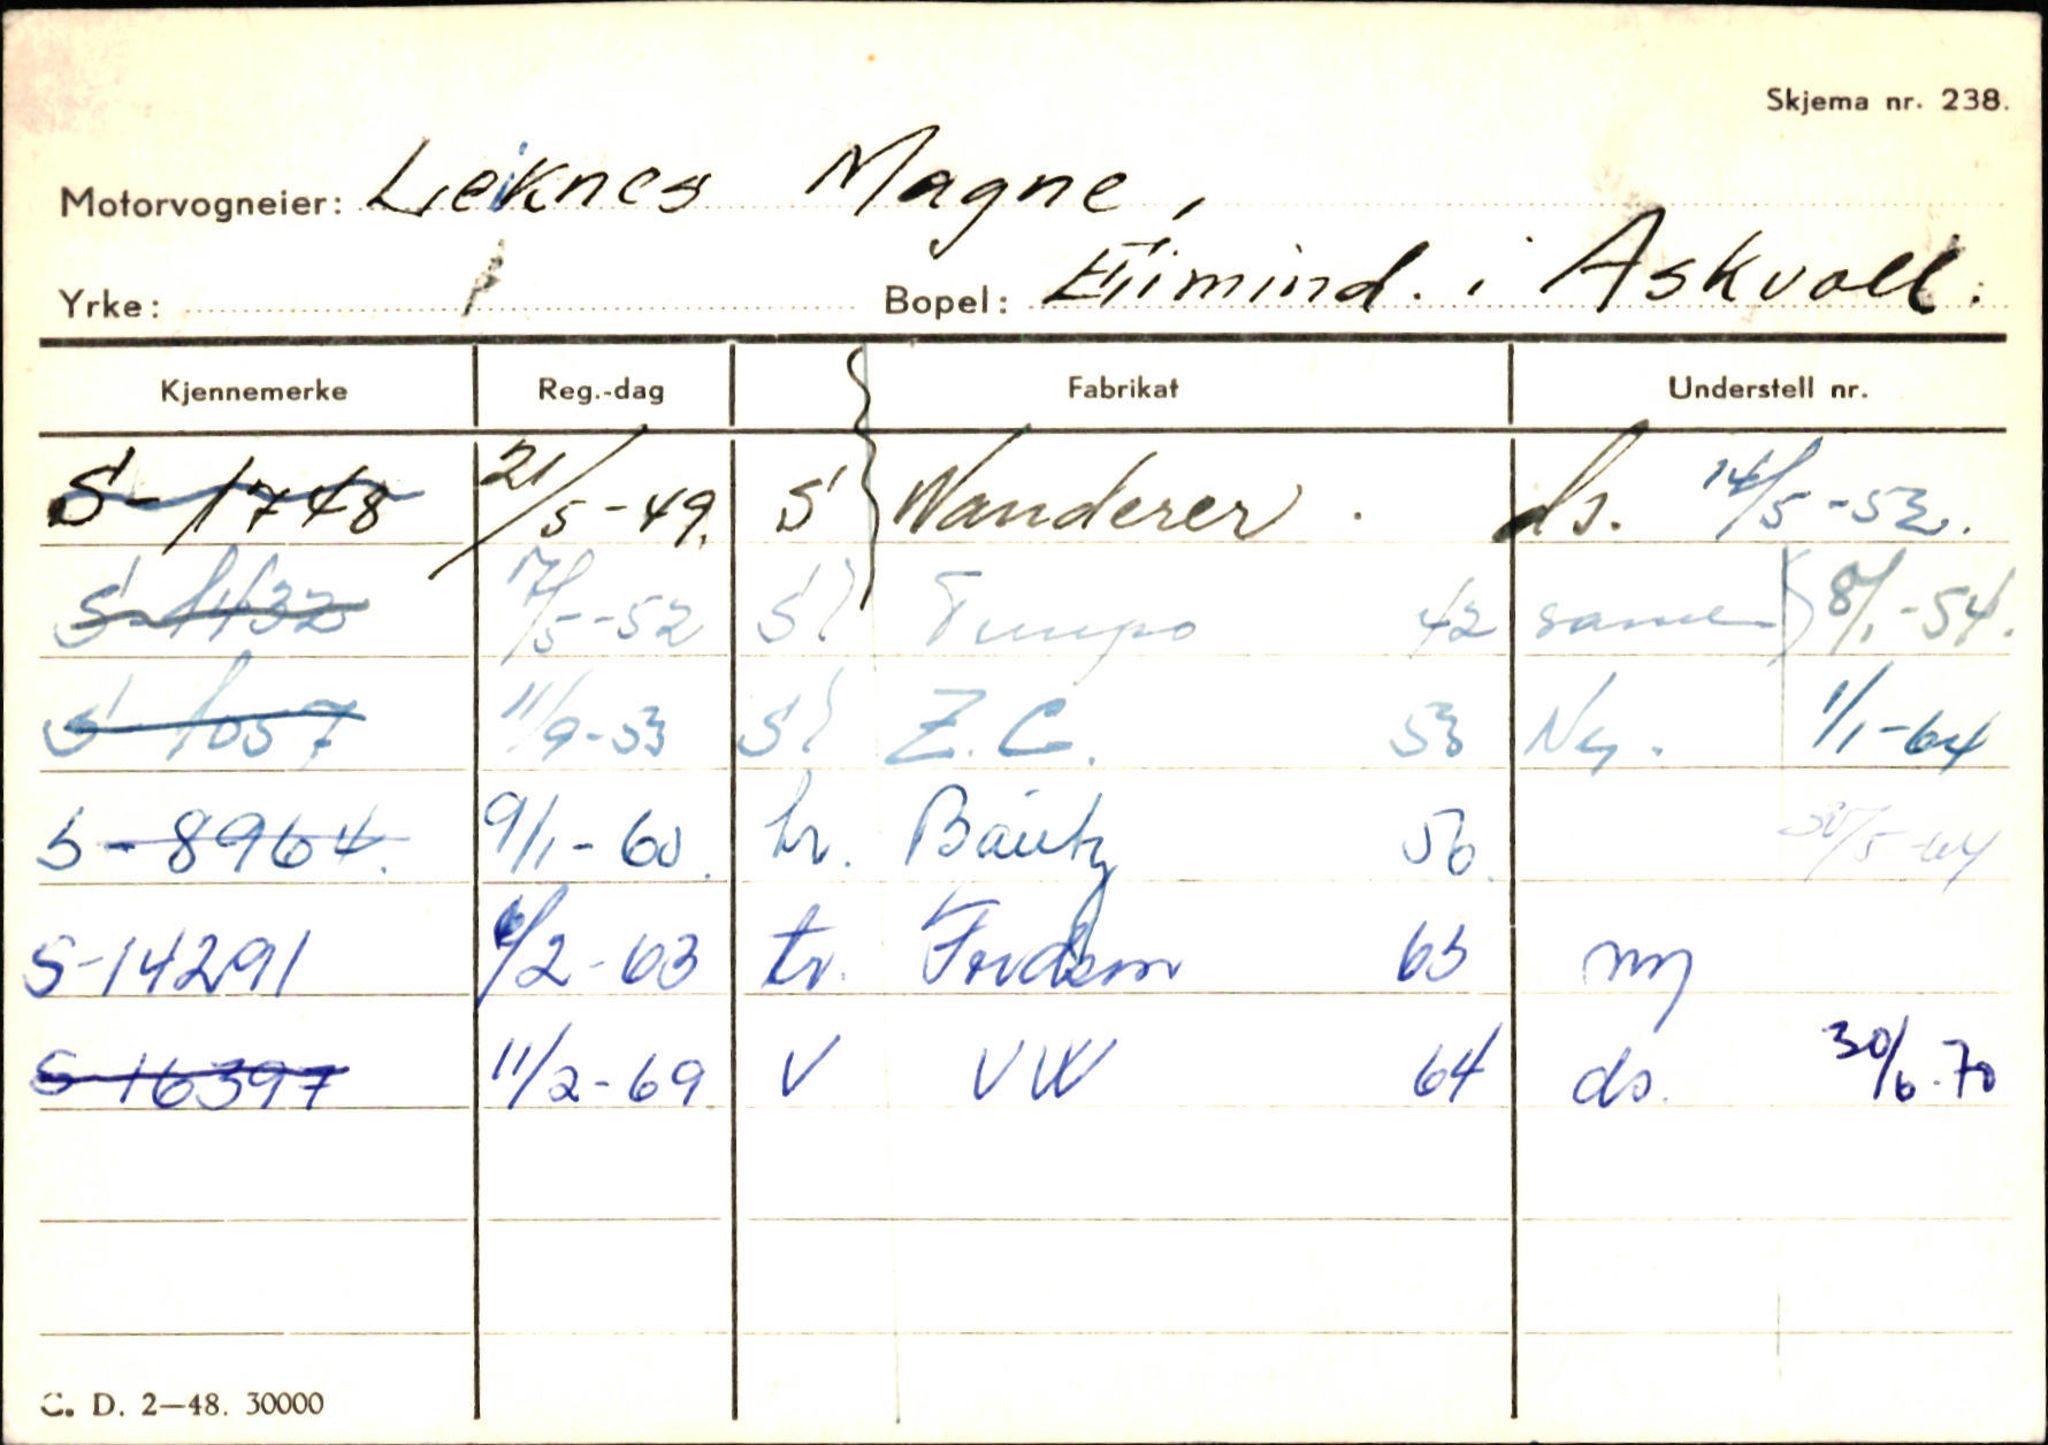 Skjema nr. 238.
Motorvogneier: Leiknes Magne,
Yrke: Bopel: i Askvoll.
Kjennemerke Reg.-dag Fabrikat Understell nr.
S-1748 21/5-49. S Wanderer. ds. 14/5-53.
S-1132 17/5-52 S Tempo 42 samen 8/1-54.
S-1057 11/9-53 S Z.C. 53 Ny. 1/1-64
S-8964. 9/1-60. tr. Bautz 56. 30/5-64
S-14291 /2-63 tr. Fordson 63 ny
S-16397 11/2-69 V VW 64 ds. 30/6-70
C. D. 2—48. 30000